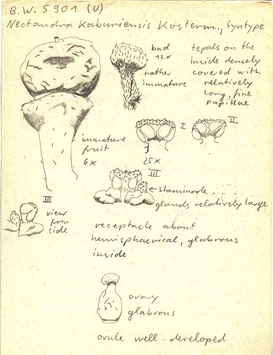 B.W. 5901 (U)
Nectandra Kaburiensis Kosterm., Syntype
bud
12x
rather
immature
tepals on the
inside densely
covered with
relatively
long, fine
papillae
I
II
immature
fruit
6x
25x
III
staminode
glands relatively large
III
view
from
side
receptacle about
hemisphaerical, glabrous
inside
ovary
glabrous
ovule well-developed